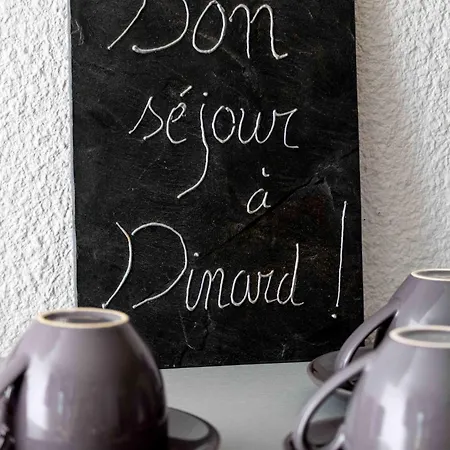 Bon
séjour
à
Dinard !